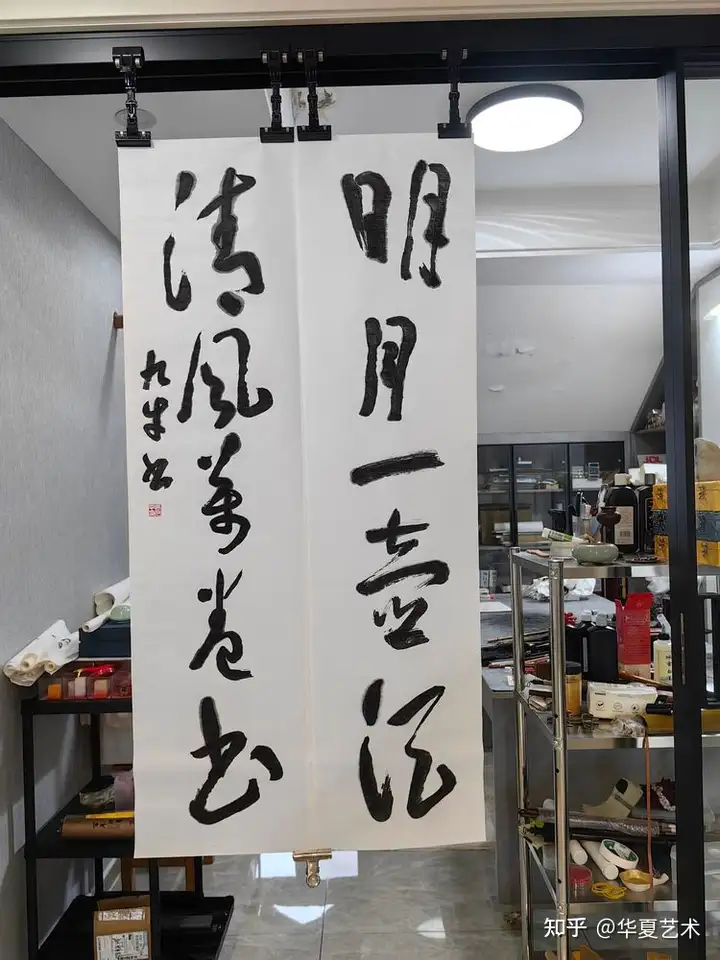 明月一壶酒
清风万卷书
九牛书
知乎 @华夏艺术